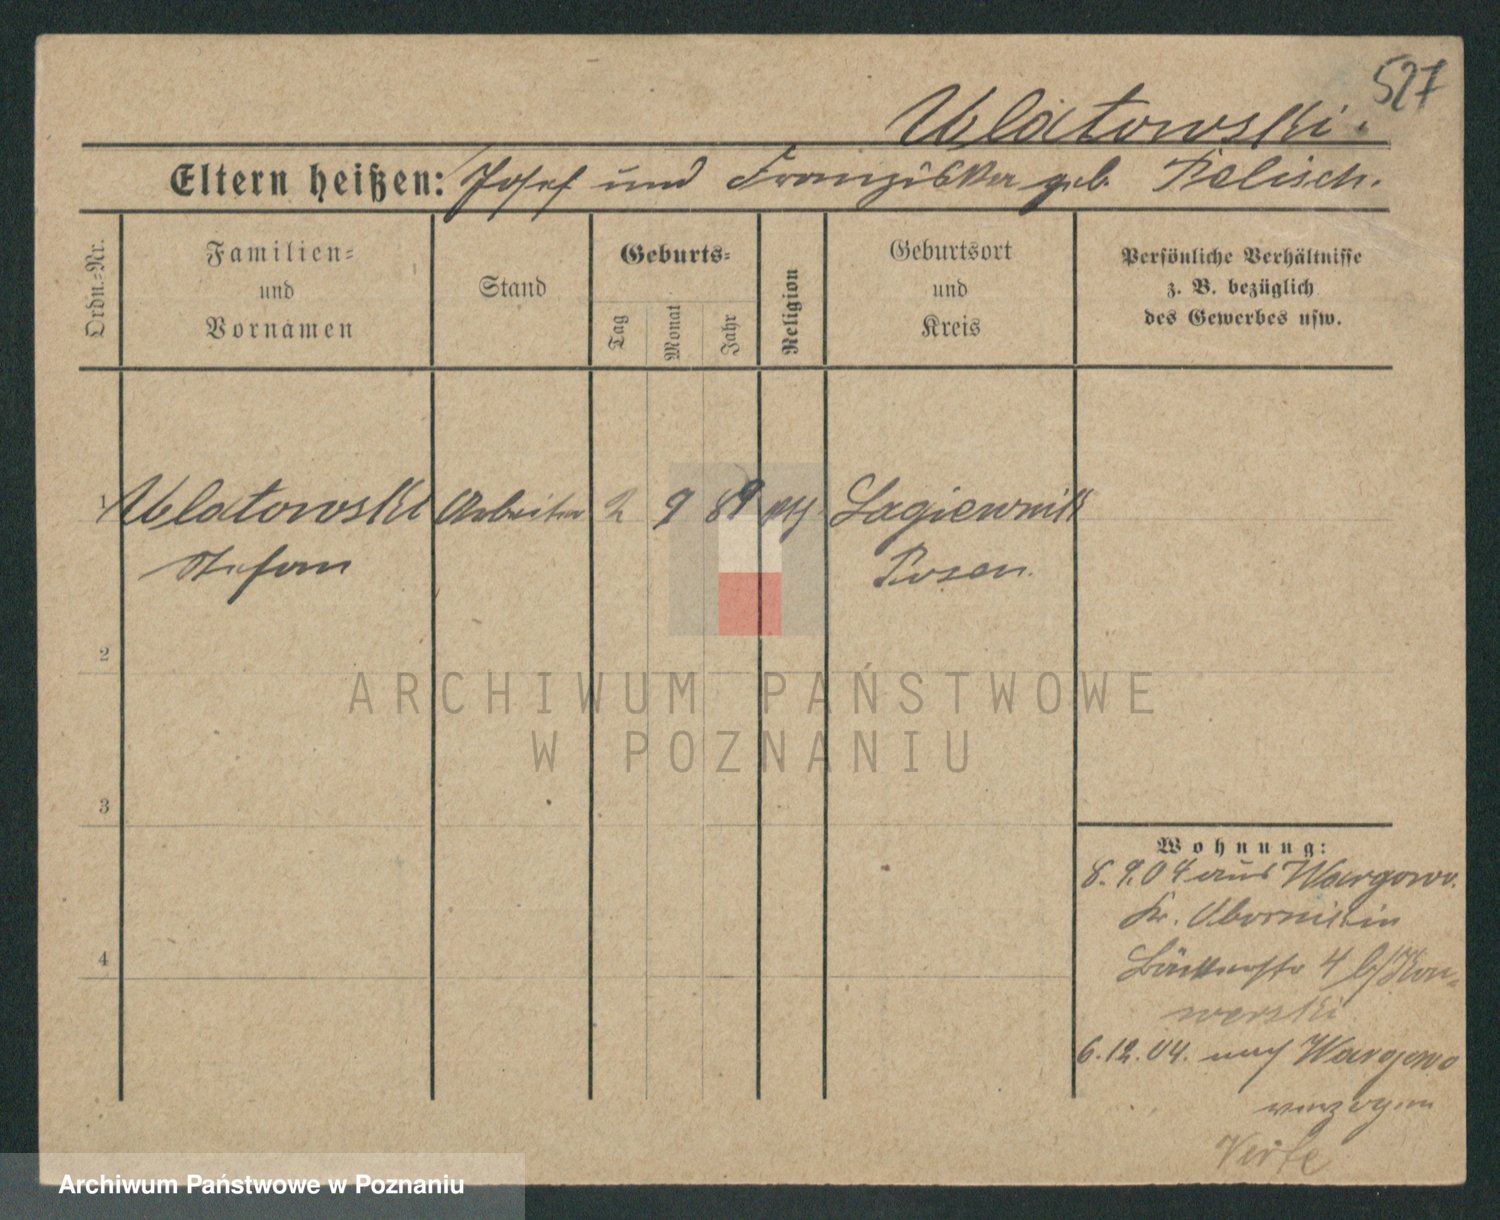 527
Ulatowski.
Eltern heißen: Josef und Franziska geb. Pielisch.
Ordn.-Nr.
Familien-
und
Vornamen
Stand
Geburts-
Tag
Monat
Jahr
Religion
Geburtsort
und
Kreis
Persönliche Verhältnisse
z. B. bezüglich
des Gewerbes usw.
1 Ulatowski Arbeiter 2 9 89 Lagiewnik
Stefan Posen.
2
3
4
Wohnung:
8. 9. 04 aus Wargowo
Kr. Obornik in
Bäckerstr 4 b/
werski
6. 12. 04. nach Wargowo
verzogen
ARCHIWUM PAŃSTWOWE
W POZNANIU
Archiwum Państwowe w Poznaniu